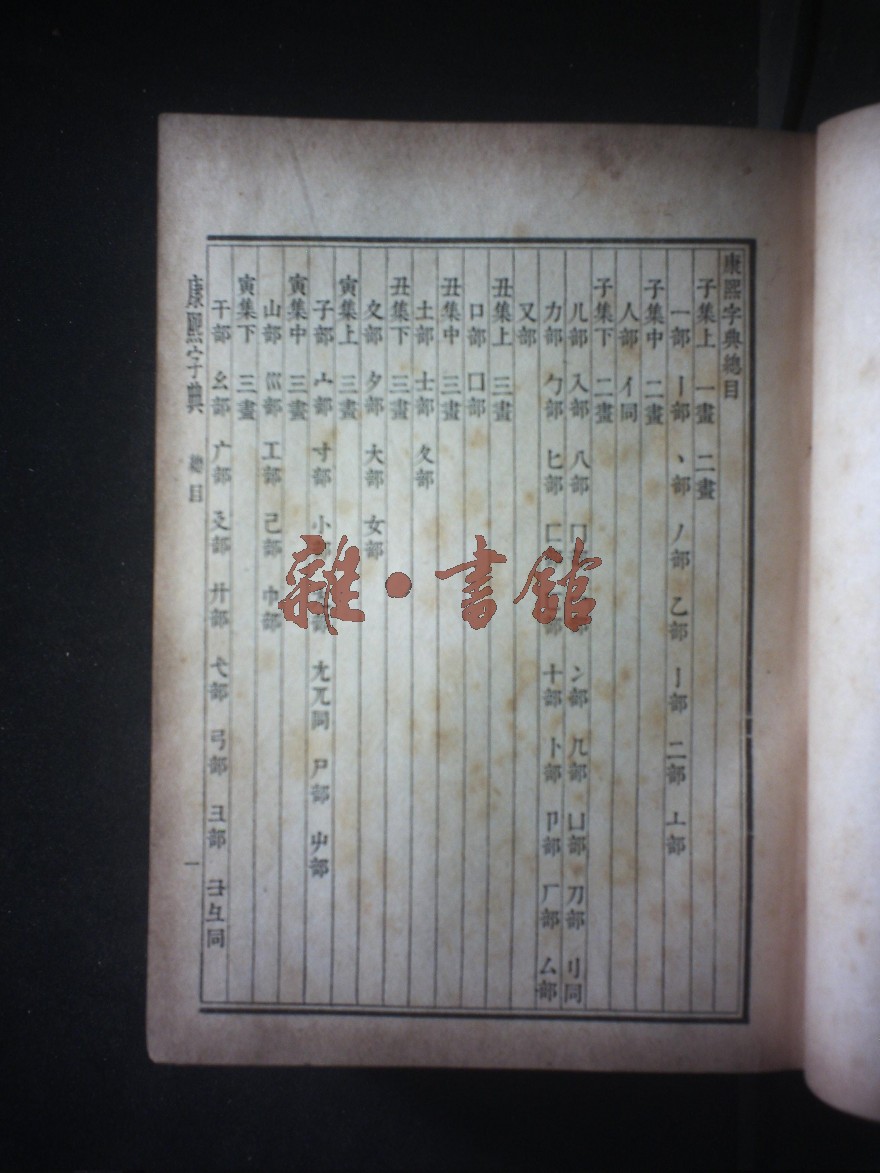 康熙字典總目
子集上 一畫 二畫
一部 丨部 丶部 丿部 乙部 亅部 二部 亠部
子集中 二畫
人部 亻同
子集下 二畫
儿部 入部 八部 冂部 冫部 几部 凵部 刀部 刂同
力部 勹部 匕部 匚部 十部 卜部 卩部 厂部 厶部
又部
丑集上 三畫
口部 囗部
丑集中 三畫
土部 士部 夂部
丑集下 三畫
夊部 夕部 大部 女部
寅集上 三畫
子部 宀部 寸部 小部 尢兀同 尸部 屮部
寅集中 三畫
山部 巛部 工部 己部 巾部
寅集下 三畫
干部 幺部 广部 廴部 廾部 弋部 弓部 彐部 彑彐同
康熙字典 總目 一
雜·書館